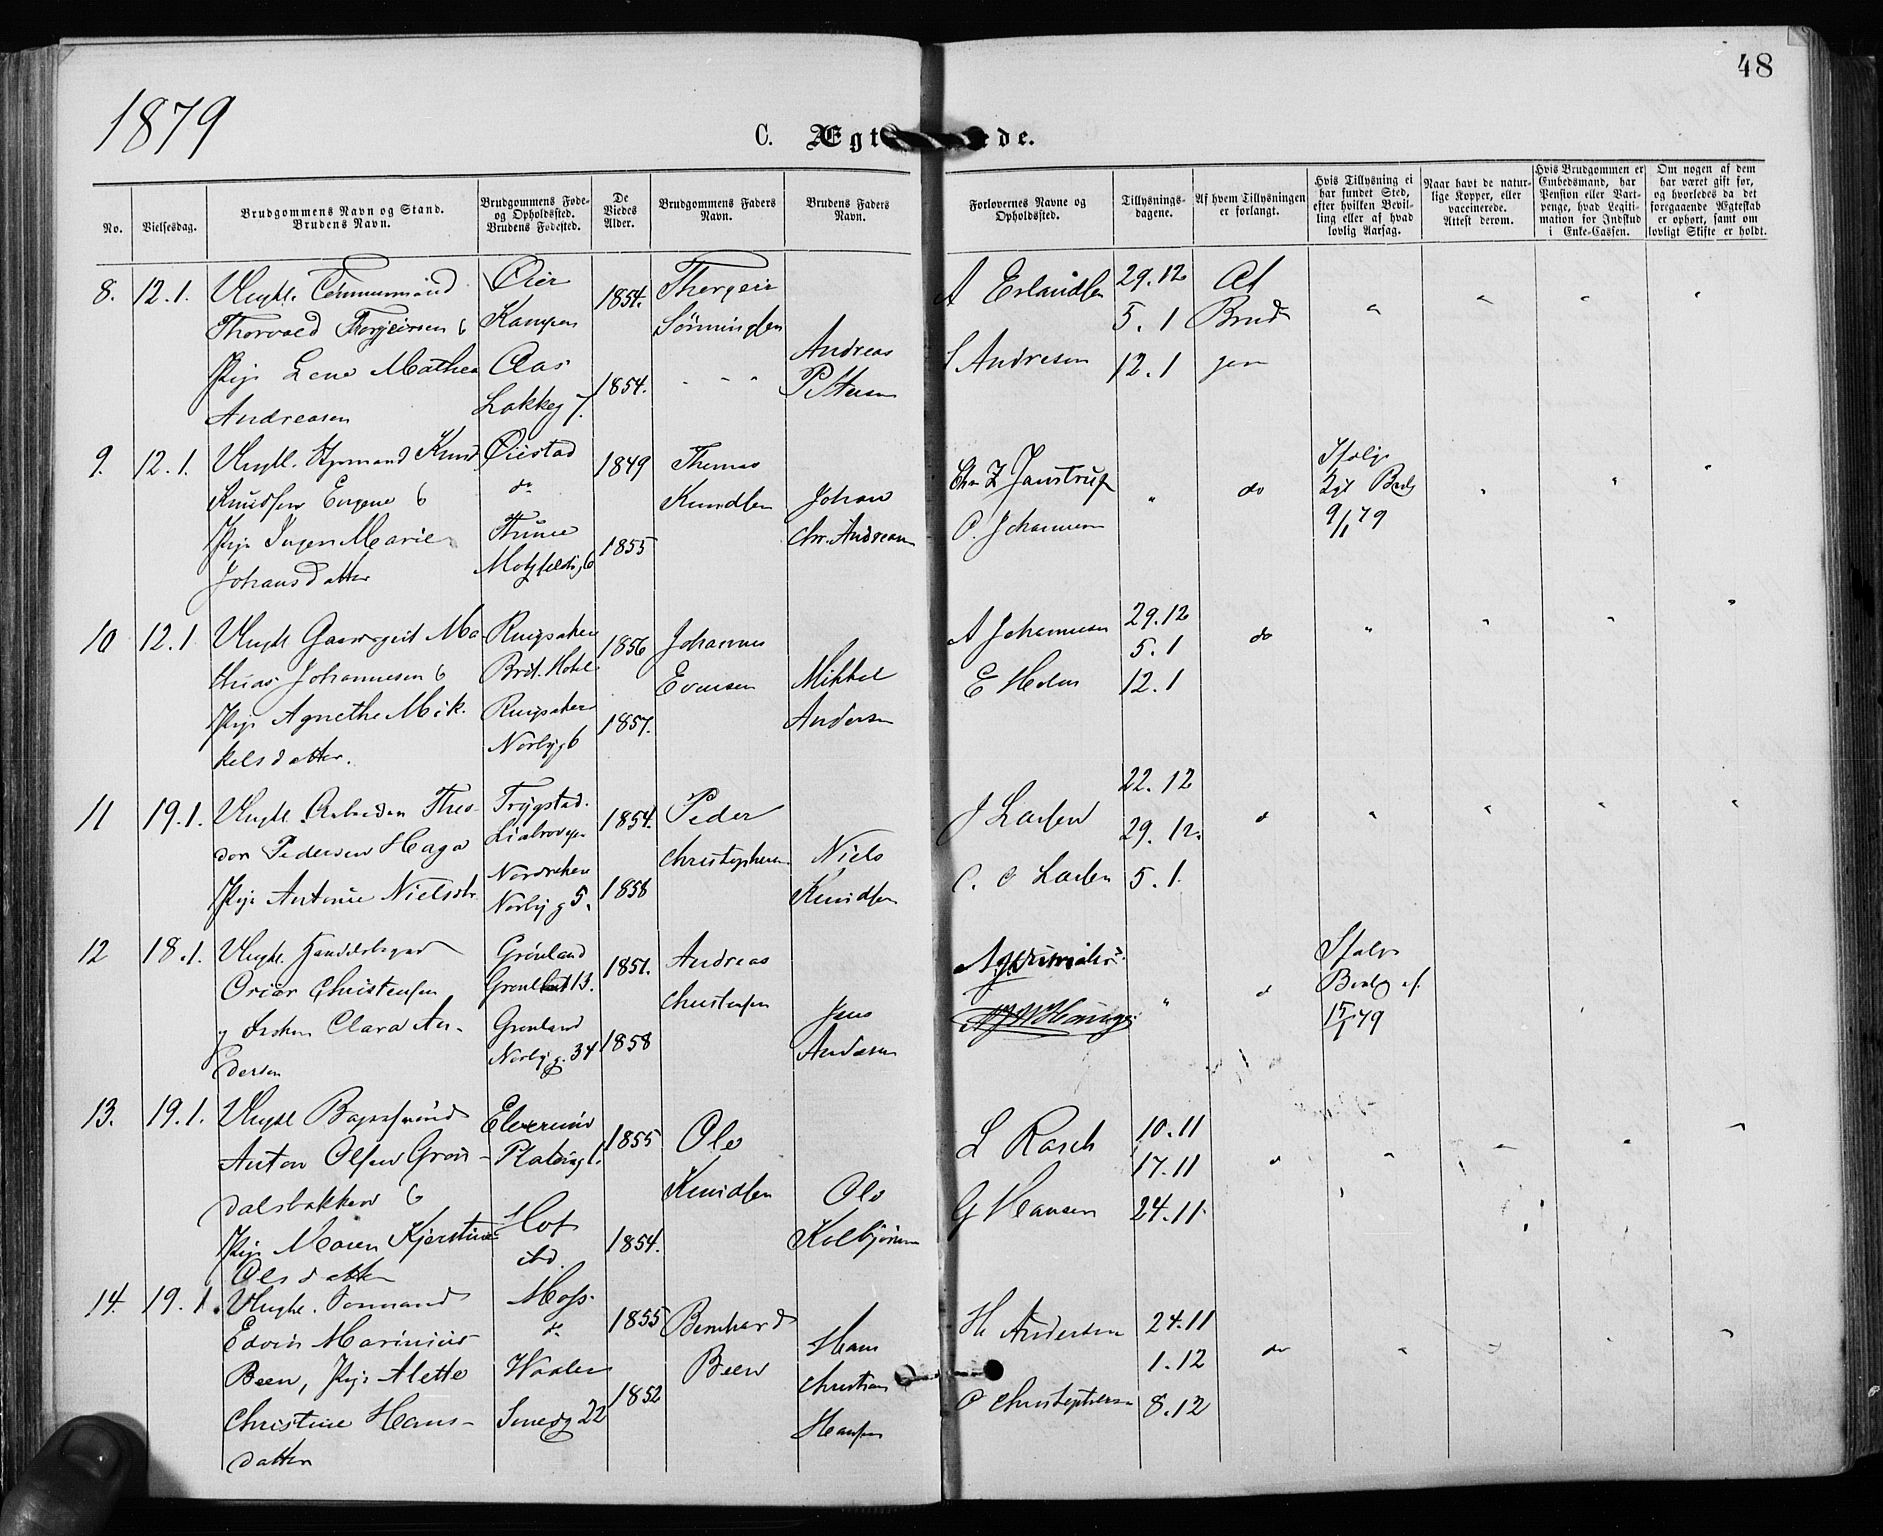 48
1879
C. Ægt ede.
No.
Vielsesdag.
Brudgommens Navn og Stand.
Brudens Navn.
Brudgommens Føde-
og Opholdssted.
Brudens Fødested.
De
Viedes
Alder.
Brudgommens Faders
Navn.
Brudens Faders
Navn.
Forlovernes Navne og
Opholdssted.
Tillysnings-
dagene.
Af hvem Tillysningen
er forlangt.
Hvis Tillysning ei
har fundet Sted,
efter hvilken Bevil-
ling eller af hvad
lovlig Aarsag.
Naar havt de natur-
lige Kopper, eller
vaccinerede.
Attest derom.
Hvis Brudgommen er
Embedsmand, har
Pension eller Vart-
penge, hvad Legiti-
mation for Indskud
i Enke-Cassen.
Om nogen af dem
har været gift før,
og hvorledes da det
foregaaende Ægteskab
er ophørt, samt om
lovligt Skifte er holdt.
8. 12.1. Ungkl. Tømmermand
Thorvald Thorgeirsen &
Pige Lene Mathea
Andreasen
Øier
Kampen
Aas
Lakkeg 7.
1854.
1854.
Thorgeir
Andreas
A Erlandsen
S Andresen
29.12
5.1
12.1
Af
Brud
gom
9. 12.1. Ungkl. Styrmand Knud
Knudsen Eugene &
Pige Inger Marie
Johansdatter
Øiestad
do
Thune
Motzfeldtsg 6
1849
1855
Thomas
Knudsen
Johan
Chr. Andreasen
O. Johannesen
"
do
Ifølge
Kgl Bevlg
9/1 79
10 12.1. Ungkl Gaardsgut Ma
thias Johannesen &
Pige Agnethe Mik-
kelsdatter.
Ringsaker
Brit. Hotel
Ringsaker
Norbyg 6
1856
1857.
Johannes
Evensen
Mikkel
Andersen
A Johannesen
E Holm
29.12
5.1
12.1
do
11 19.1. Ungkl. Arbeider Theo-
dor Pedersen Haga
Pige Antonie Nielsdtr.
Trygstad.
Liabroveien
Norbyg 5.
1854.
1858
Peder
Christophersen
Niels
Knudsen
J Larsen
C. O Larsen
22.12
29.12.
5.1.
12 18.1. Ungkl. Handelsbgmd
Christensen
Clara An-
dersen
Grønland
Grønland 13.
Grønland
Norbyg. 34
1851.
1858
Andreas
Christensen
Jens
Andersen
Ifølge
Bevlg af
15/1 79
13. 19.1. Ungkl Bagersvend
Anton Olsen Grøn-
dalsbakken &
Pige Maren Kjerstine
Olsdatter
Elverum
Hof
ibd.
1855
1854.
Ole
Knudsen
Ole
Kolbjørnsen
L Rasch
G Hansen
10.11
17.11
24.11.
14. 19.1. Ungkl. Sømand
Edvin Marinius
Been, Pige Alette
Christine Hans-
datter
Moss
do
Vaaler
Smedg 22
1855
1852
Bernhard
Been
Hans
Christian
Hansen
H. Andersen
O Christophersen
24.11
1.12
8.12
do